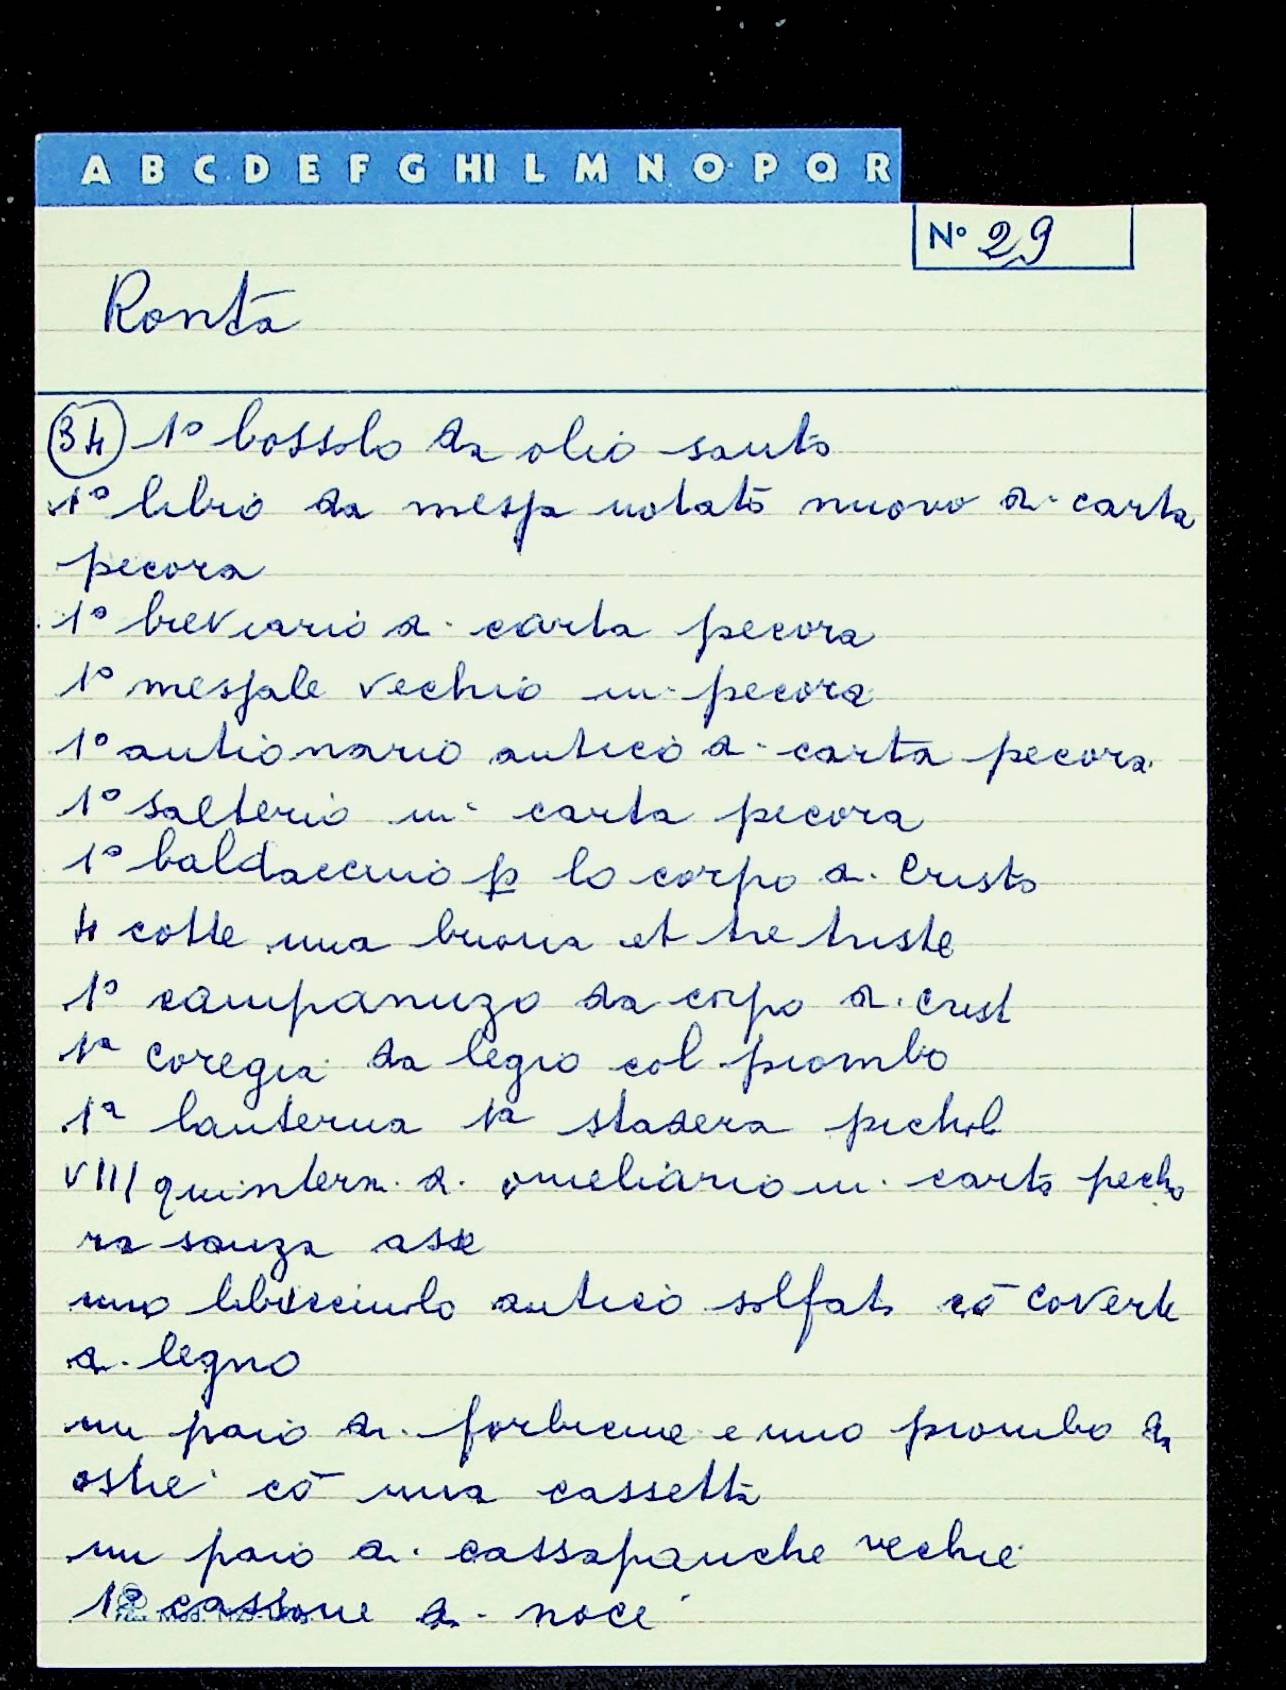 A B C D E F G HI L M N O P Q R
N° 29
Ronta
34 1° bossolo da olio santo
1° libro da messa notato nuovo di carta
pecora
1° breviario di carta pecora
1° messale vechio in pecora
1° antionario antico di carta pecora
1° salterio in carta pecora
1° baldaccino p lo corpo di Cristo
4 cotte una buona et tre triste
1° campanuzo da corpo di Crist
1ª coregia da legio col piombo
1ª lanterna 1ª stadera pichol
VIII quintern. di omeliario in carta pecho
ra sanza asse
uno libricciuolo antico solfato cō coverte
di legno
un paio di forbicine e uno piombo da
ostie cō una cassetta
un paio di cassapanche vechie
1° cassone di noce